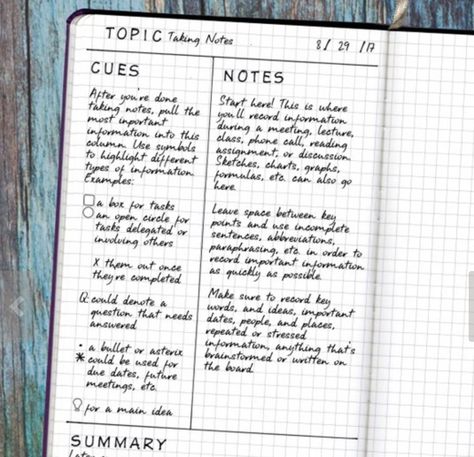 TOPIC Taking Notes 8/29/17
CUES
After you're done
taking notes, pull the
most important
information into this
column. Use symbols
to highlight different
types of information
Examples:
a box for tasks
an open circle for
tasks delegated or
involving others
X them out once
they're completed
Q could denote a
question that needs
answered
• a bullet or asterix
* could be used for
due dates, future
meetings, etc.
for a main idea
NOTES
Start here! This is where
you'll record information
during a meeting, lecture,
class, phone call, reading
assignment, or discussion.
Sketches, charts, graphs,
formulas, etc. can also go
here.
Leave space between key
points and use incomplete
sentences, abbreviations,
paraphrasing, etc. in order to
record important information
as quickly as possible.
Make sure to record key
words, and ideas, important
dates, people, and places,
repeated or stressed
information, anything that's
brainstormed or written on
the board.
SUMMARY